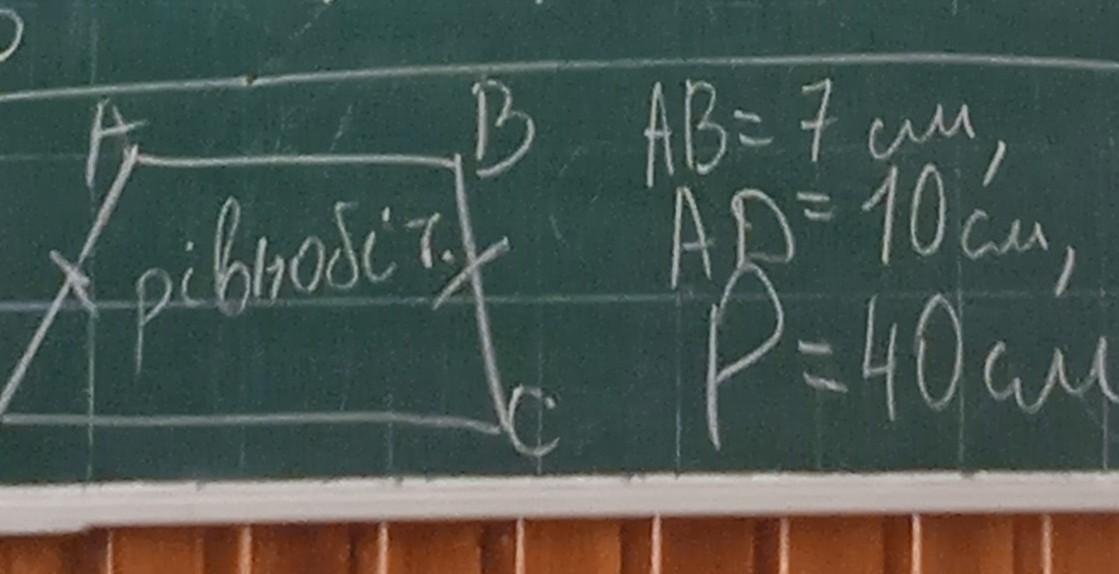 A
B
рівнобіч.
C
AB = 7 см,
AD = 10 см,
P = 40 см